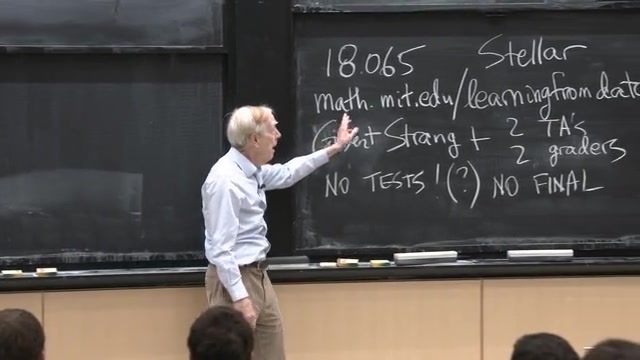 18.065 Stellar
math.mit.edu/learningfromdata
Gilbert Strang + 2 TA's
2 graders
NO TESTS! (?) NO FINAL